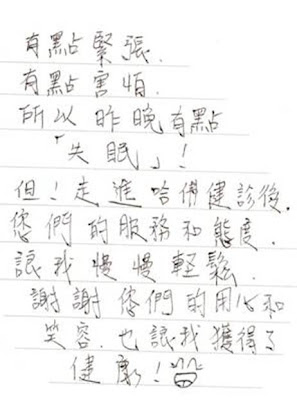 有點緊張.
有點害怕.
所以昨晚有點
「失眠」!
但!走進哈佛健診後.
您們的服務和態度.
讓我慢慢輕鬆.
謝謝您們的用心和
笑容.也讓我獲得了
健康!